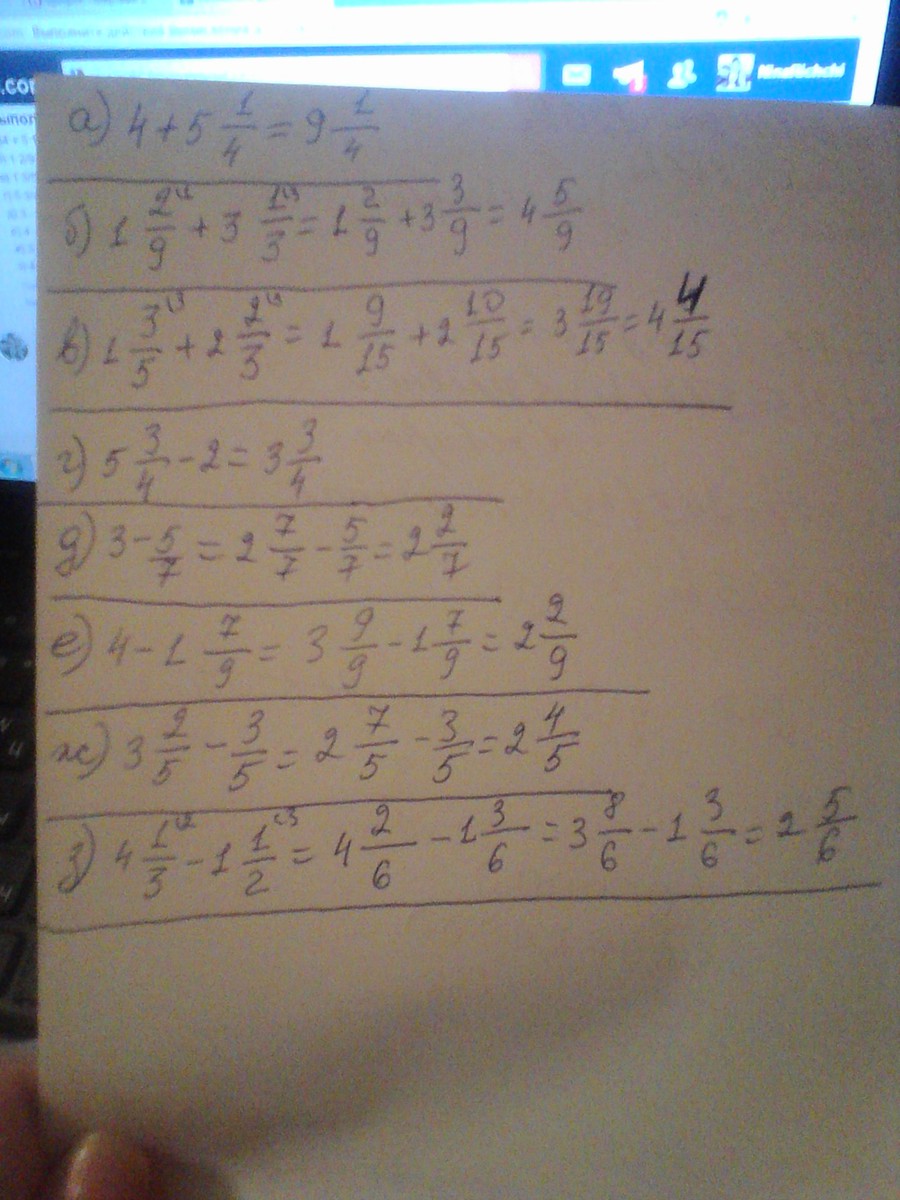 .com
NinaRichchi
а) 4 + 5 1/4 = 9 1/4
б) 1 2/9 + 3 1/3 = 1 2/9 + 3 3/9 = 4 5/9
в) 1 3/5 + 2 2/3 = 1 9/15 + 2 10/15 = 3 19/15 = 4 4/15
г) 5 3/4 - 2 = 3 3/4
д) 3 - 5/7 = 2 7/7 - 5/7 = 2 2/7
е) 4 - 1 7/9 = 3 9/9 - 1 7/9 = 2 2/9
ж) 3 2/5 - 3/5 = 2 7/5 - 3/5 = 2 4/5
з) 4 1/3 - 1 1/2 = 4 2/6 - 1 3/6 = 3 8/6 - 1 3/6 = 2 5/6